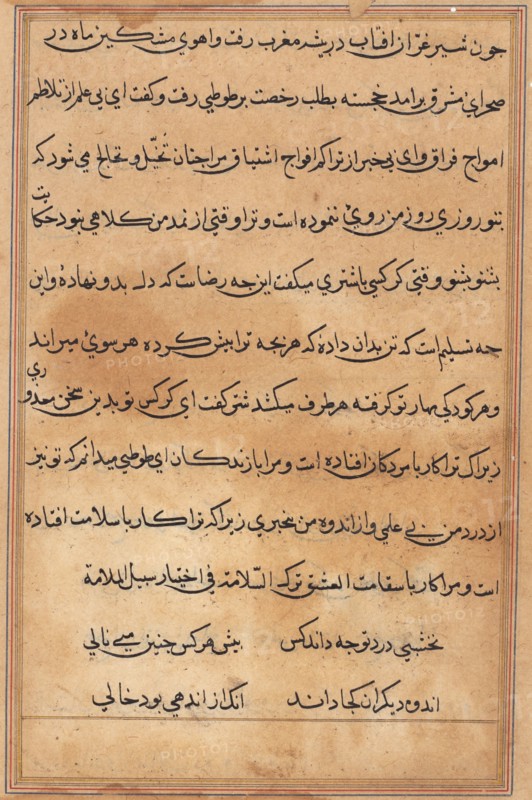 جون شیر غرّان افتاب در بیشه مغرب رفت و اهوي مشکین ماه در
صحراي مشرق برامد خجسته بطلب رخصت بر طوطي رفت و کفت اي بي علم از تلاطم
امواج فراق و اي بي خبر از تراکم افواج اشتیاق مرا جنان تخیّل و تخالج مي شود که
بتو روزي روز من روي ننموده است و ترا وقتي از نمد من کلاهي نبود حکایت
بشنو بشنو وقتي کرکسي با شتري میکفت این جه رضاست که دل بدو نهادۀ و این
جه تسلیم است که تن بدان دادۀ که هر بجه ترا بیش کرده هر سوي میراند
و هر کودکي مهار تو کرفته هر طرف میکشد شتر کفت اي کرکس تو بدین سخن معذوري
زیراک ترا کار با مردکان افتاده است و مرا با زندکان اي طوطي میدانم که تو نیز
از درد من بي علمي و از اندوه من بیخبري زیراکه ترا کار با سلامت افتاده
است و مرا کار با سقامت العشق ترک السّلامة في اختیار سبیل الملامة
نخشبي درد تو جه داند کس
بیش هر کس جنین همي نالي
اندوه دیکران کجا داند
انک از اندهي بود خالي